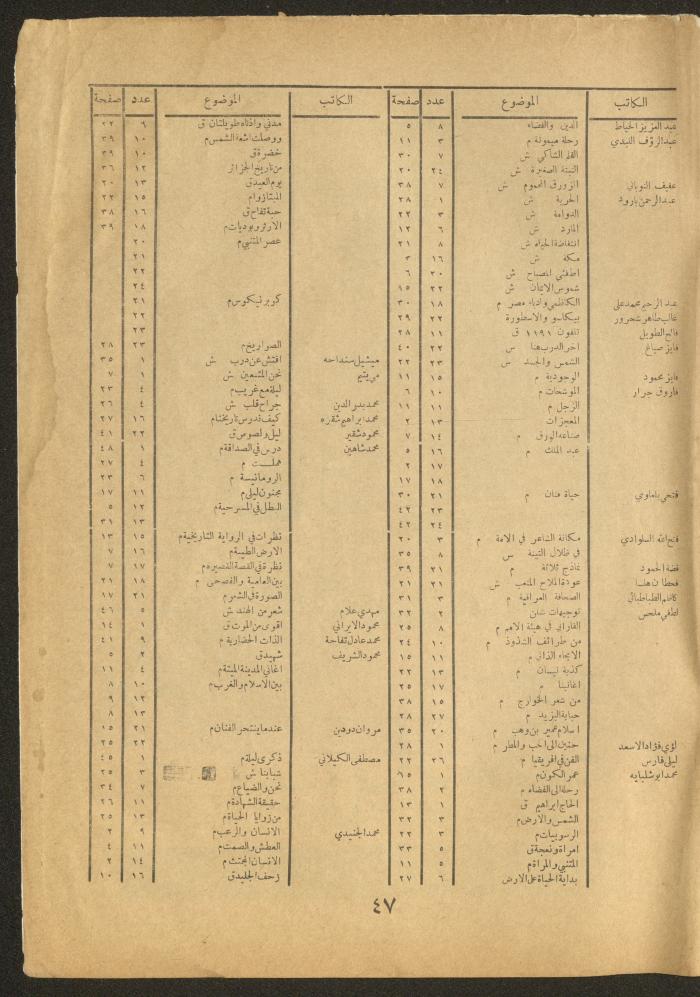 الكاتب الموضوع عدد صفحة
عبد العزيز الخياط الدين والفضاء ٨ ٥
عبد الرؤف اللبدي رحلة ميمونة م ٣ ١١
القلم الشاكي ش ٧ ٣٠
النبتة الصغيرة ش ٢٤ ٢٠
عفيف النوباني الزورق المحموم ش ٧ ٣٨
عبد الرحمن بارود الحرية ش ١ ٢٨
الدوامة ش ٣ ٢٢
المارد ش ٦ ١٢
انتفاضة الحياه ش ٨ ٢١
مكة ش ١٦
اطفئي المصباح ش ٢٠ ٦
شموس الاتنان ش ٢٢ ١٥
عبد الرحيم محمد علي الكاظمي وادباء مصر م ١٨ ٣٠
غالب طاهر شحرور بيكاسو والاسطورة ٢٢ ٢٩
فالح الطويل تلفون ١١٩١ ق ١١ ٢٨
فايز صياغ اخر الدرب هنا س ٢٢ ٤٠
الشمس والجسد س ٢٣ ٢٢
فايز محمود الوجودية م ١٥ ١١
فاروق جرار الموشحات م ١٠ ٦
الزجل م ١١ ١١
المعجزات ١٣ ٢
صناعة الورق م ١٤ ٧
عبد الملك م ١٦ ٥
١٧ ٢
١٨ ١٧
فتحي بلعاوي حياة فنان م ٢١ ٣٠
٢٣ ٤٢
٢٤ ٤٢
فتح الله السلوادي مكانة الشاعر في الامة م ٣ ٢٠
في ظلال التينة س ٨ ٣٥
فضة الحمود نماذج ثلاثة م ٢١ ٣٩
قحطان هلسا عودة الملاح المتعب ش ٢١ ٢١
كاظم الطباطبائي الصحافة العراقية م ٣ ٣١
لطفي ملحس توجيهات شبان م ٢ ٣٢
الفارابي في هيئة الامم م ٨ ٢٥
من طرائف الشذوذ م ١٠ ٢٤
الايحاء الذاتي م ١١ ١٥
كذبة نيسان م ١٣ ٢٢
اغانينا م ١٧ ٢٥
من شعر الخوارج م ١٥ ٣٨
حبابة اليزيد م ٢٧ ٢٨
اسلام عمير بن وهب م ٢٠ ٣٥
لؤي فؤاد الاسعد حنين الى الحب والمطر م ١ ٢٨
ليلى فارس الفن في افريقيا م ٢٦ ٢٢
محمد ابو شلبايه عمر الكون م ١ ٦٥
رحلة الى الفضاء م ٢ ٣٨
الحاج ابراهيم ق ١ ١٣
الشمس والارض م ٣ ٣٢
الرسوبيات م ٣ ٢٢
امراة ونعجة ق ٥ ٣٣
المتنبي والمراة م ٥ ١١
بداية الحياة على الارض ٦ ٢٧
الكاتب الموضوع عدد صفحة
مدني واذناه طويلتان ق ٩ ٢٢
ووصلت اشعة الشمس م ١٠ ٣٩
خضرة ق ١٠ ٣٩
من تاريخ الجزائر ١٢ ٣٦
يوم العيد ق ١٣ ٢٠
المبتازوا م ١٥ ٢٢
حبة تفاح ق ١٦ ٣٨
الارثر وبوديات م ١٨ ٣٩
عصر المتنبي م ٢٠
٢١
٢٢
٢٤
كوبرنيكوس م ٢١
٢٢
٢٣
الصواريخ م ٢٣ ٢٨
ميشيل سنداحه افتش عن درب ش ١ ٣٥
مريتيم نحن المتعبين ش ١ ٧
ليلة مع غريب م ٤ ٢٣
محمد بدر الدين جراح قلب ش ٤ ٢٦
محمد ابراهيم شقره كيف ندرس تاريخنا م ١٦ ٢٧
محمود شقير ليل ولصوص ق ٢٢ ٤١
محمد شاهين درس في الصداقة م ١ ٤٨
هملت م ٤ ٢٧
الرومانسية م ٦ ٢٣
مجنون ليلى م ١١ ١٧
البطل في المسرحية م ١٢ ٥
١٣ ٣١
نظرات في الرواية التاريخية م ١٥ ١٣
الارض الطيبة م ١٦ ٧
نظرة في القصة القصيرة م ١٧ ٧
بين العامية والفصحى م ١٨ ٢١
الصورة في الشعر م ٢١ ١٧
مهدي علام شعر من الهند ش ٥ ٤٦
محمود الايراني اقوى من الموت ق ١ ١٤
محمد عادل تفاحة الذات الحضارية م ٩ ٤١
محمود الشريف شهيد ق ٢ ٥
اغاني المدينة الميتة م ٤ ١١
بين الاسلام والغرب م ١٠ ٨
١٢ ٩
١٣ ٨
مروان دودين عندما ينتحر الفنان م ٢١ ١٥
٢٢ ٢٥
مصطفى الكيلاني ذكرى ليلة م ١ ٤٥
شبابنا ش ٣ ٢٥
نحن والضياع م ٧ ٣٤
حقيقة الشهادة م ١١ ٢٦
من زوايا الحياة م ١٣ ٢٥
محمد الجنيدي الانسان والرعب م ٩ ٢
العطش والصمت م ١١ ٤
الانسان المجتث م ١٤ ٢
زحف الجليد ق ١٦ ١٠
٤٧